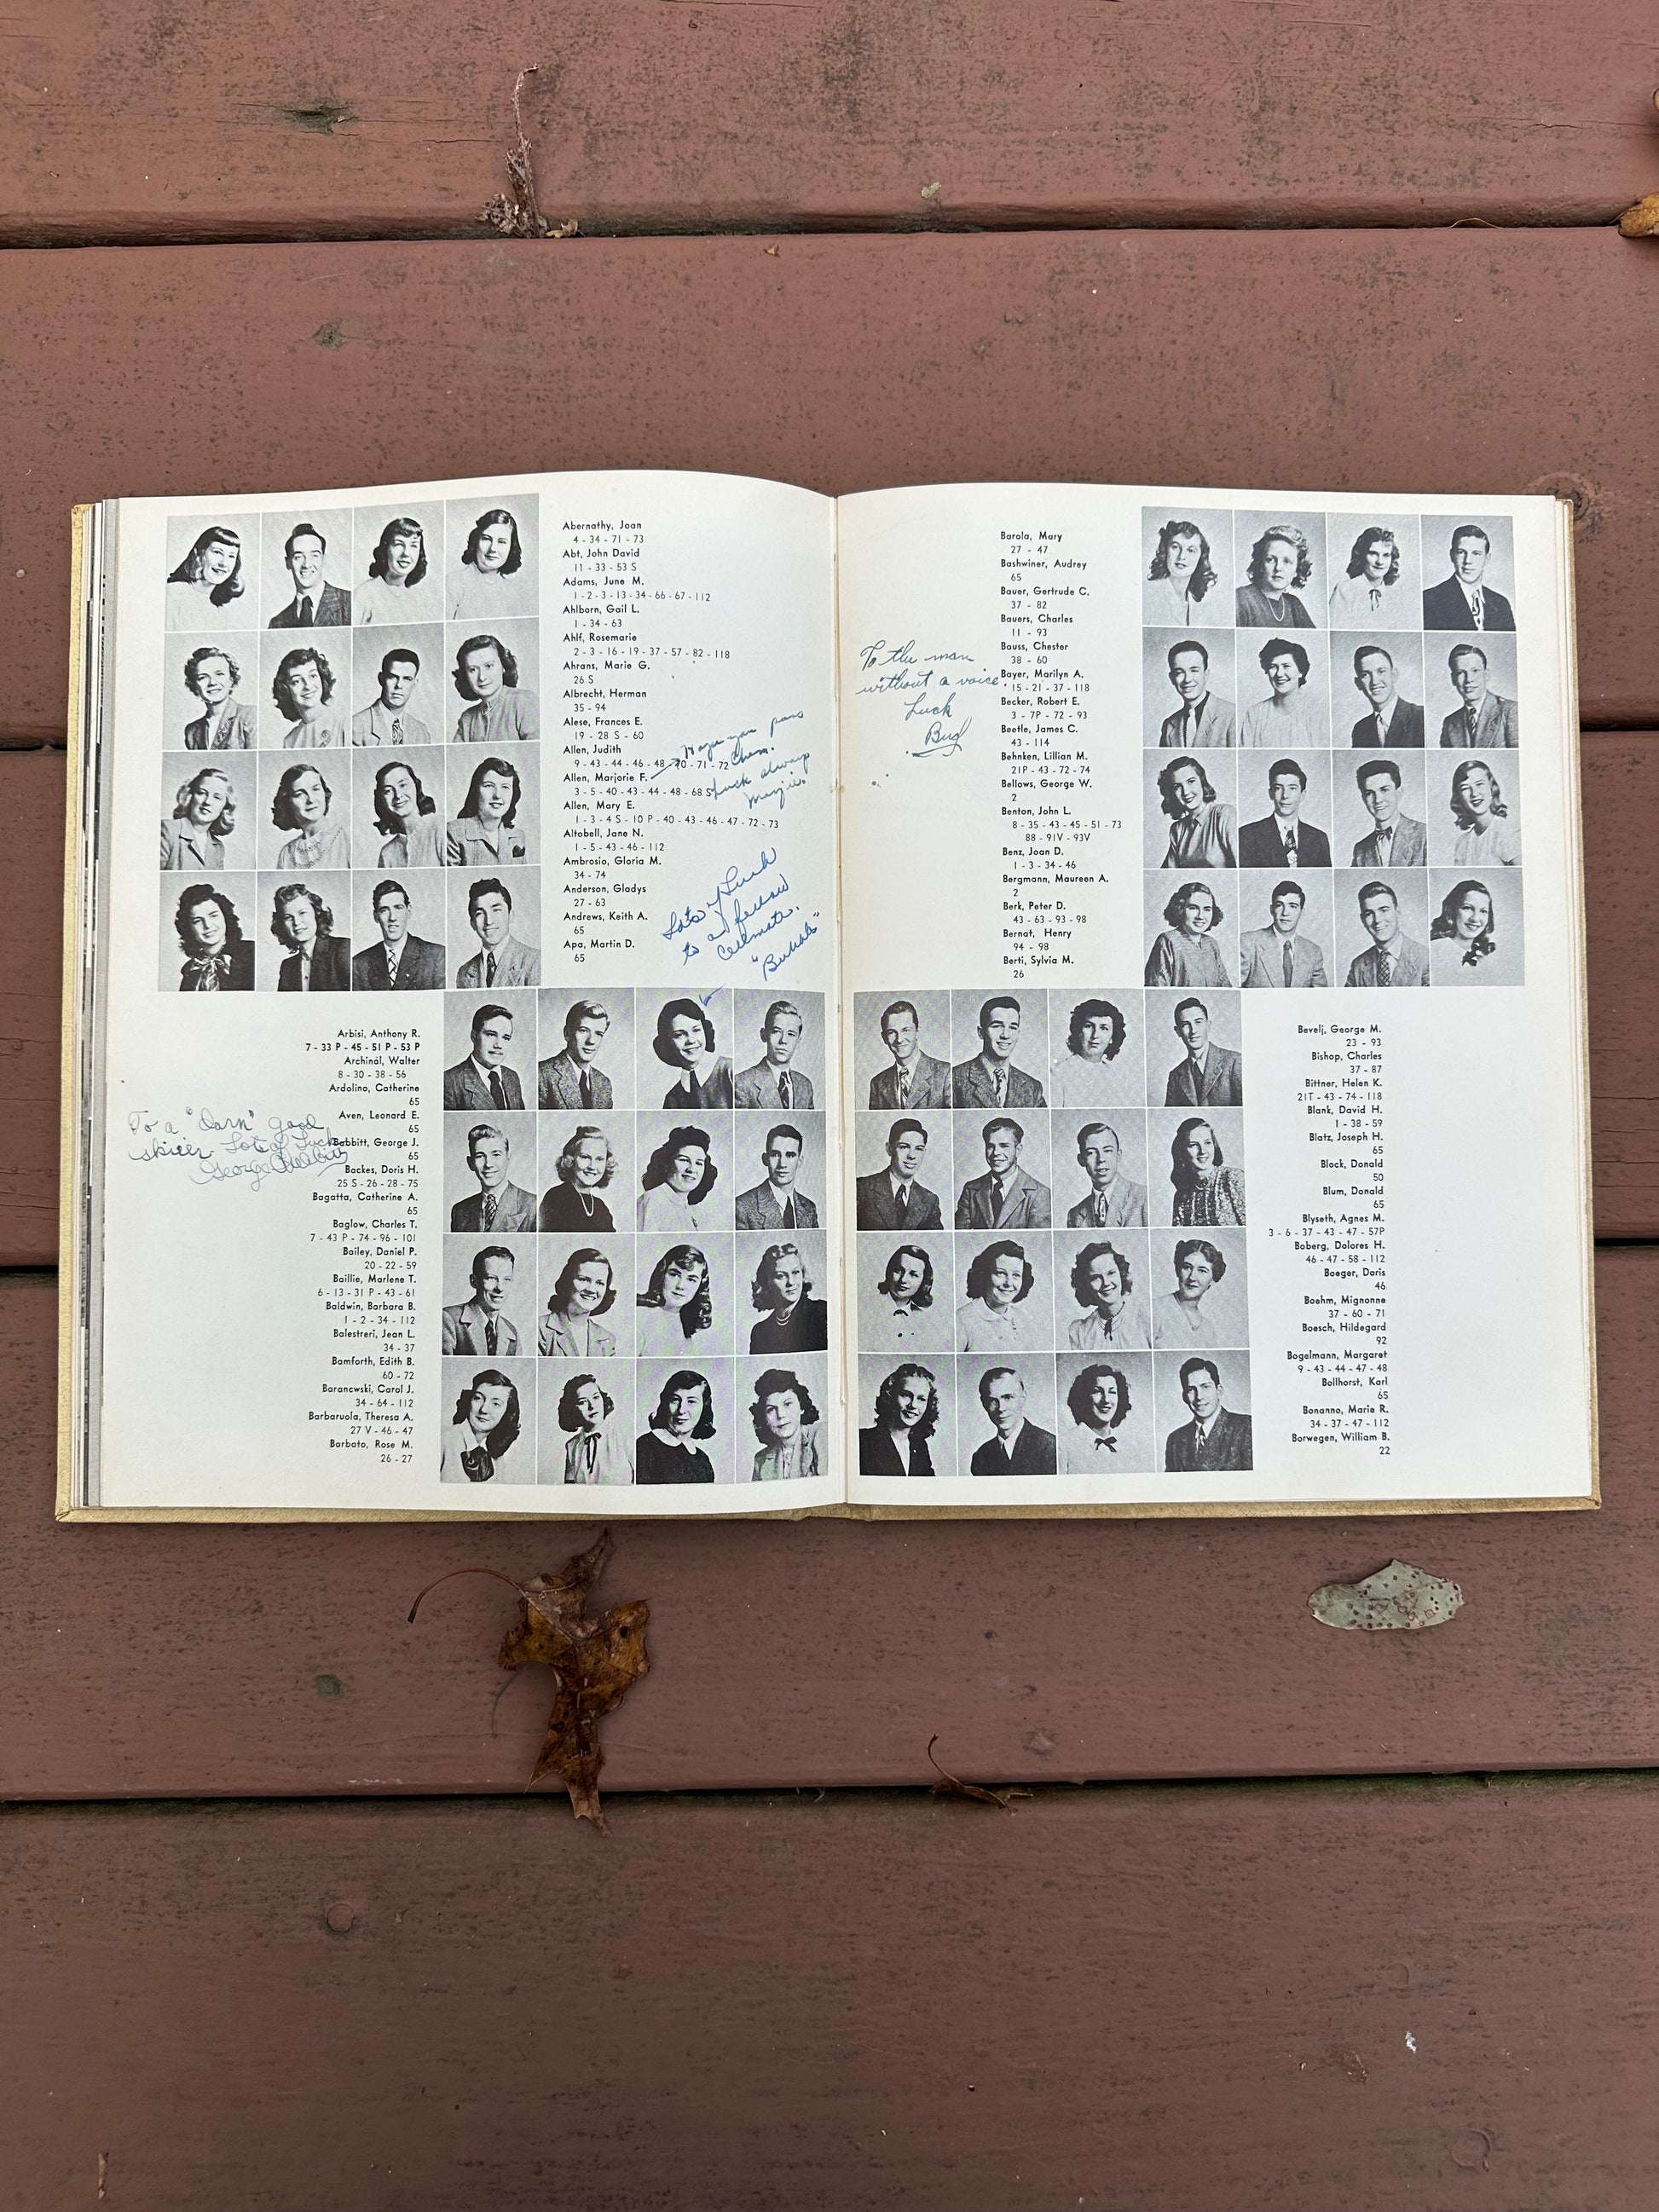 Abernathy, Joan
4 - 34 - 71 - 73
Abt, John David
11 - 33 - 53 S
Adams, June M.
1 - 2 - 3 - 13 - 34 - 66 - 67 - 112
Ahlborn, Gail L.
1 - 34 - 63
Ahlf, Rosemarie
2 - 3 - 16 - 19 - 37 - 57 - 82 - 118
Ahrans, Marie G.
26 S
Albrecht, Herman
35 - 94
Alese, Frances E.
19 - 28 S - 60
Allen, Judith
9 - 43 - 44 - 46 - 48 - 70 - 71 - 72
Allen, Marjorie F.
3 - 5 - 40 - 43 - 44 - 48 - 68 S
Allen, Mary E.
1 - 3 - 4 S - 10 P - 40 - 43 - 46 - 47 - 72 - 73
Altobell, Jane N.
1 - 5 - 43 - 46 - 112
Ambrosio, Gloria M.
34 - 74
Anderson, Gladys
27 - 63
Andrews, Keith A.
65
Apa, Martin D.
65
Hope you pass
Chem.
Luck always
Marjie.
Lots of Luck
to a fellow
cellmate.
"Bubbles"
Arbisi, Anthony R.
7 - 33 P - 45 - 51 P - 53 P
Archinal, Walter
8 - 30 - 38 - 56
Ardolino, Catherine
65
Aven, Leonard E.
65
Babbitt, George J.
65
Backes, Doris H.
25 S - 26 - 28 - 75
Bagatta, Catherine A.
65
Baglow, Charles T.
7 - 43 P - 74 - 96 - 101
Bailey, Daniel P.
20 - 22 - 59
Baillie, Marlene T.
6 - 13 - 31 P - 43 - 61
Baldwin, Barbara B.
1 - 2 - 34 - 112
Balestreri, Jean L.
34 - 37
Bamforth, Edith B.
60 - 72
Baranewski, Carol J.
34 - 64 - 112
Barbaruola, Theresa A.
27 V - 46 - 47
Barbato, Rose M.
26 - 27
To a "Darn" good
skier. Lots of Luck
George Babbitt
Barola, Mary
27 - 47
Bashwiner, Audrey
65
Bauer, Gertrude C.
37 - 82
Bauers, Charles
11 - 93
Bauss, Chester
38 - 60
Bayer, Marilyn A.
15 - 21 - 37 - 118
Becker, Robert E.
3 - 7P - 72 - 93
Beetle, James C.
43 - 114
Behnken, Lillian M.
21P - 43 - 72 - 74
Bellows, George W.
2
Benton, John L.
8 - 35 - 43 - 45 - 51 - 73
88 - 91V - 93V
Benz, Joan D.
1 - 3 - 34 - 46
Bergmann, Maureen A.
2
Berk, Peter D.
43 - 63 - 93 - 98
Bernat, Henry
94 - 98
Berti, Sylvia M.
26
To the man
without a voice.
Luck
Bug
Bevelj, George M.
23 - 93
Bishop, Charles
37 - 87
Bittner, Helen K.
21T - 43 - 74 - 118
Blank, David H.
1 - 38 - 59
Blatz, Joseph H.
65
Block, Donald
50
Blum, Donald
65
Blyseth, Agnes M.
3 - 6 - 37 - 43 - 47 - 57P
Boberg, Dolores H.
46 - 47 - 58 - 112
Boeger, Doris
46
Boehm, Mignonne
37 - 60 - 71
Boesch, Hildegard
92
Bogelmann, Margaret
9 - 43 - 44 - 47 - 48
Bollhorst, Karl
65
Bonanno, Marie R.
34 - 37 - 47 - 112
Borwegen, William B.
22